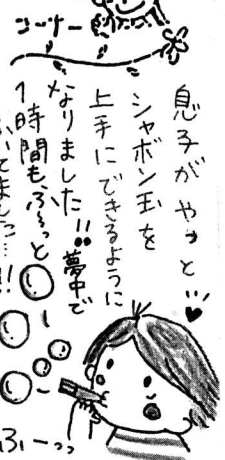 コーナー
息子がやっと
シャボン玉を
上手にできるように
なりました!!夢中で
1時間も、ふ〜っと
いてました…!!
ふーっっ